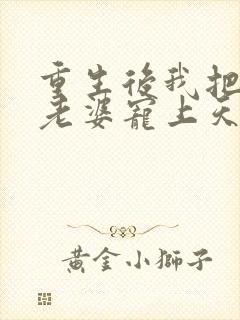 重生後我把
老婆寵上天
黃金小獅子